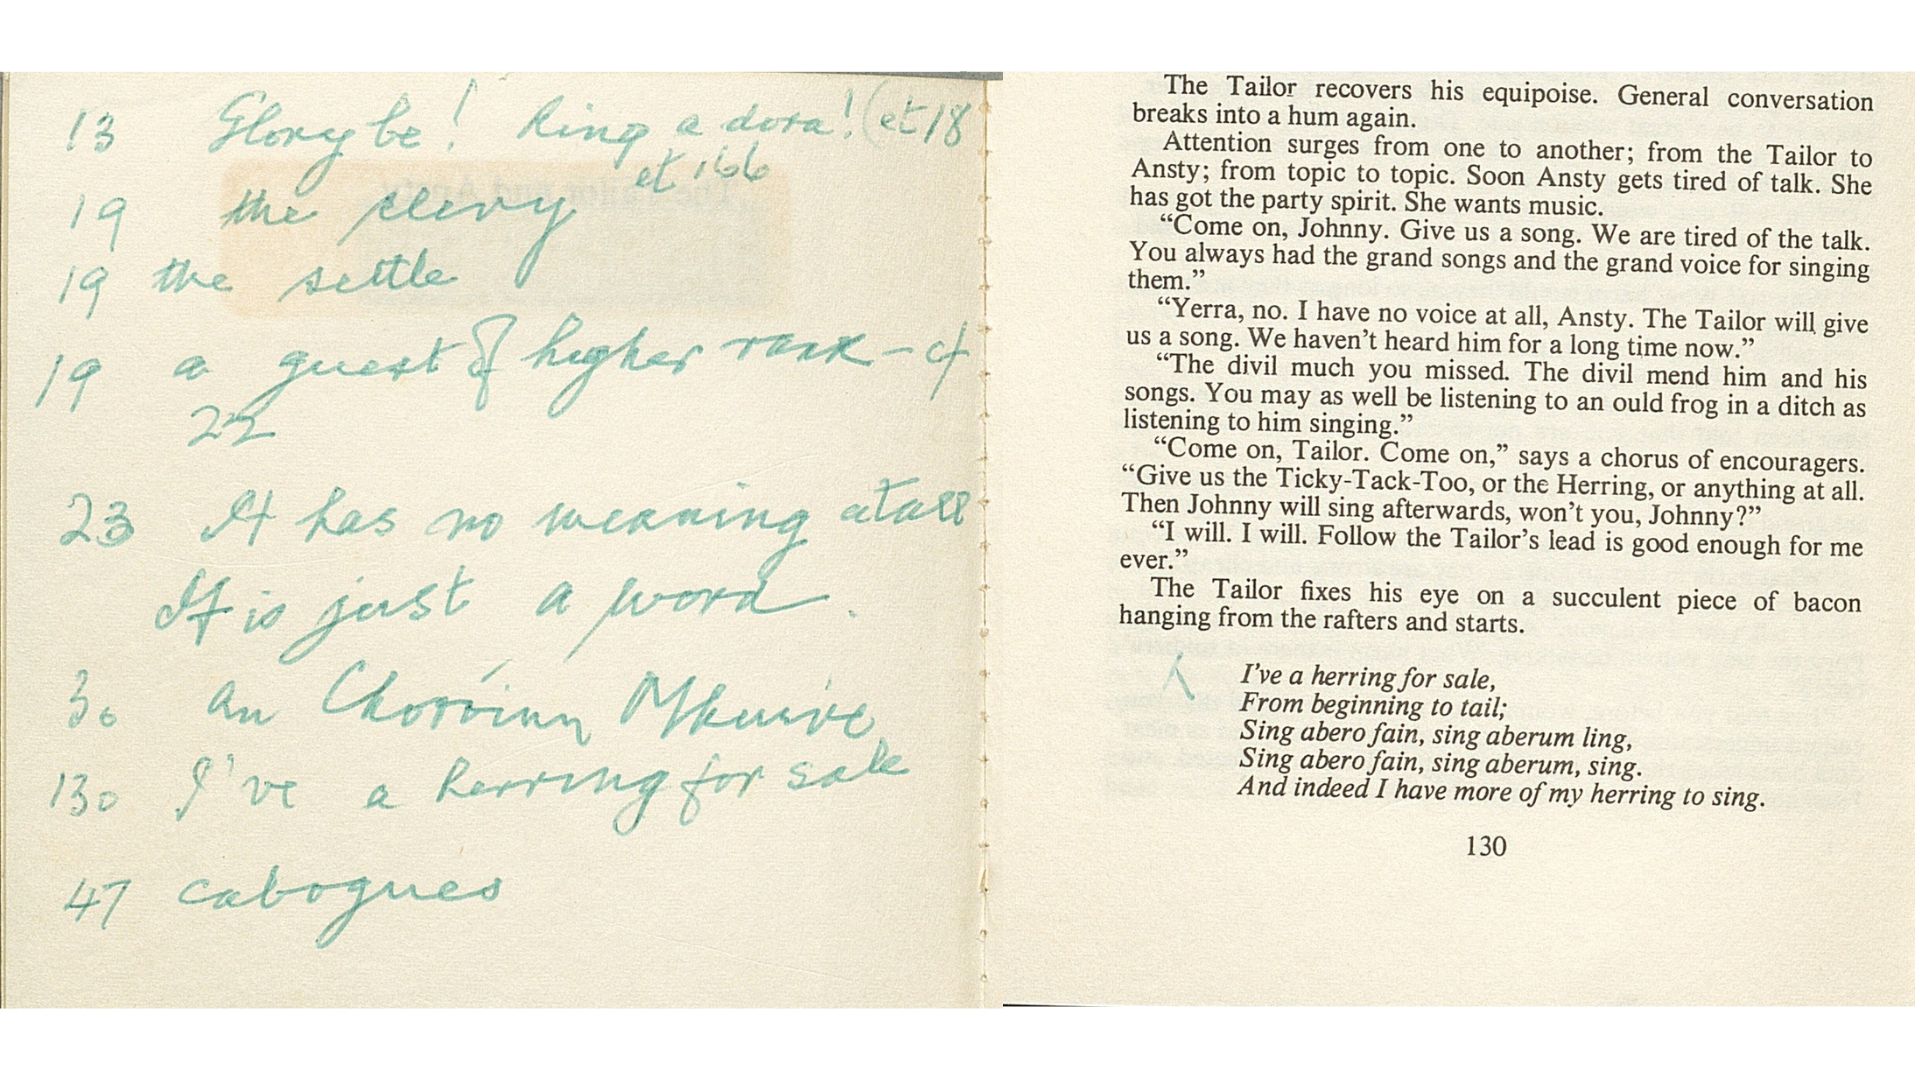 13 Glory be! Ring a dora! (et 18
et 166
19 the clevy
19 the settle
19 a guest of higher rank – cf
22
23 It has no meaning atall
It is just a word.
30 an Chóróinn Mhuire
130 I've a herring for sale
47 cabogues
The Tailor recovers his equipoise. General conversation
breaks into a hum again.
Attention surges from one to another; from the Tailor to
Ansty; from topic to topic. Soon Ansty gets tired of talk. She
has got the party spirit. She wants music.
“Come on, Johnny. Give us a song. We are tired of the talk.
You always had the grand songs and the grand voice for singing
them.”
“Yerra, no. I have no voice at all, Ansty. The Tailor will give
us a song. We haven’t heard him for a long time now.”
“The divil much you missed. The divil mend him and his
songs. You may as well be listening to an ould frog in a ditch as
listening to him singing.”
“Come on, Tailor. Come on,” says a chorus of encouragers.
“Give us the Ticky-Tack-Too, or the Herring, or anything at all.
Then Johnny will sing afterwards, won’t you, Johnny?”
“I will. I will. Follow the Tailor’s lead is good enough for me
ever.”
The Tailor fixes his eye on a succulent piece of bacon
hanging from the rafters and starts.
I’ve a herring for sale,
From beginning to tail;
Sing abero fain, sing aberum ling,
Sing abero fain, sing aberum, sing.
And indeed I have more of my herring to sing.
130